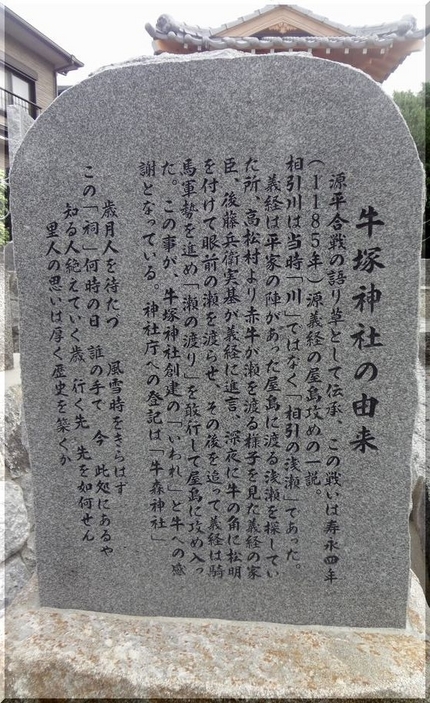 牛塚神社の由来
源平合戦の語り草として伝承、この戦いは寿永四年
(1185年)源義経の屋島攻めの一説。
相引川は当時「川」ではなく「相引の浅瀬」であった。
義経は平家の陣があった屋島に渡る浅瀬を探してい
た所、高松村より赤牛が瀬を渡る様子を見た義経の家
臣、後藤兵衛実基が義経に進言、深夜に牛の角に松明
を付けて眼前の瀬を渡らせ、その後を追って義経は騎
馬軍勢を進め「瀬の渡り」を敢行して屋島に攻め入っ
た。この事が、牛塚神社創建の「いわれ」と牛への感
謝となっている。神社庁への登記は「牛森神社」
歳月人を待たづ 風雪時をきらはず
この「祠」何時の日 誰の手で 今 此処にあるや
知る人絶えていく歳 行く先 先を如何せん
里人の思いは厚く歴史を築くか